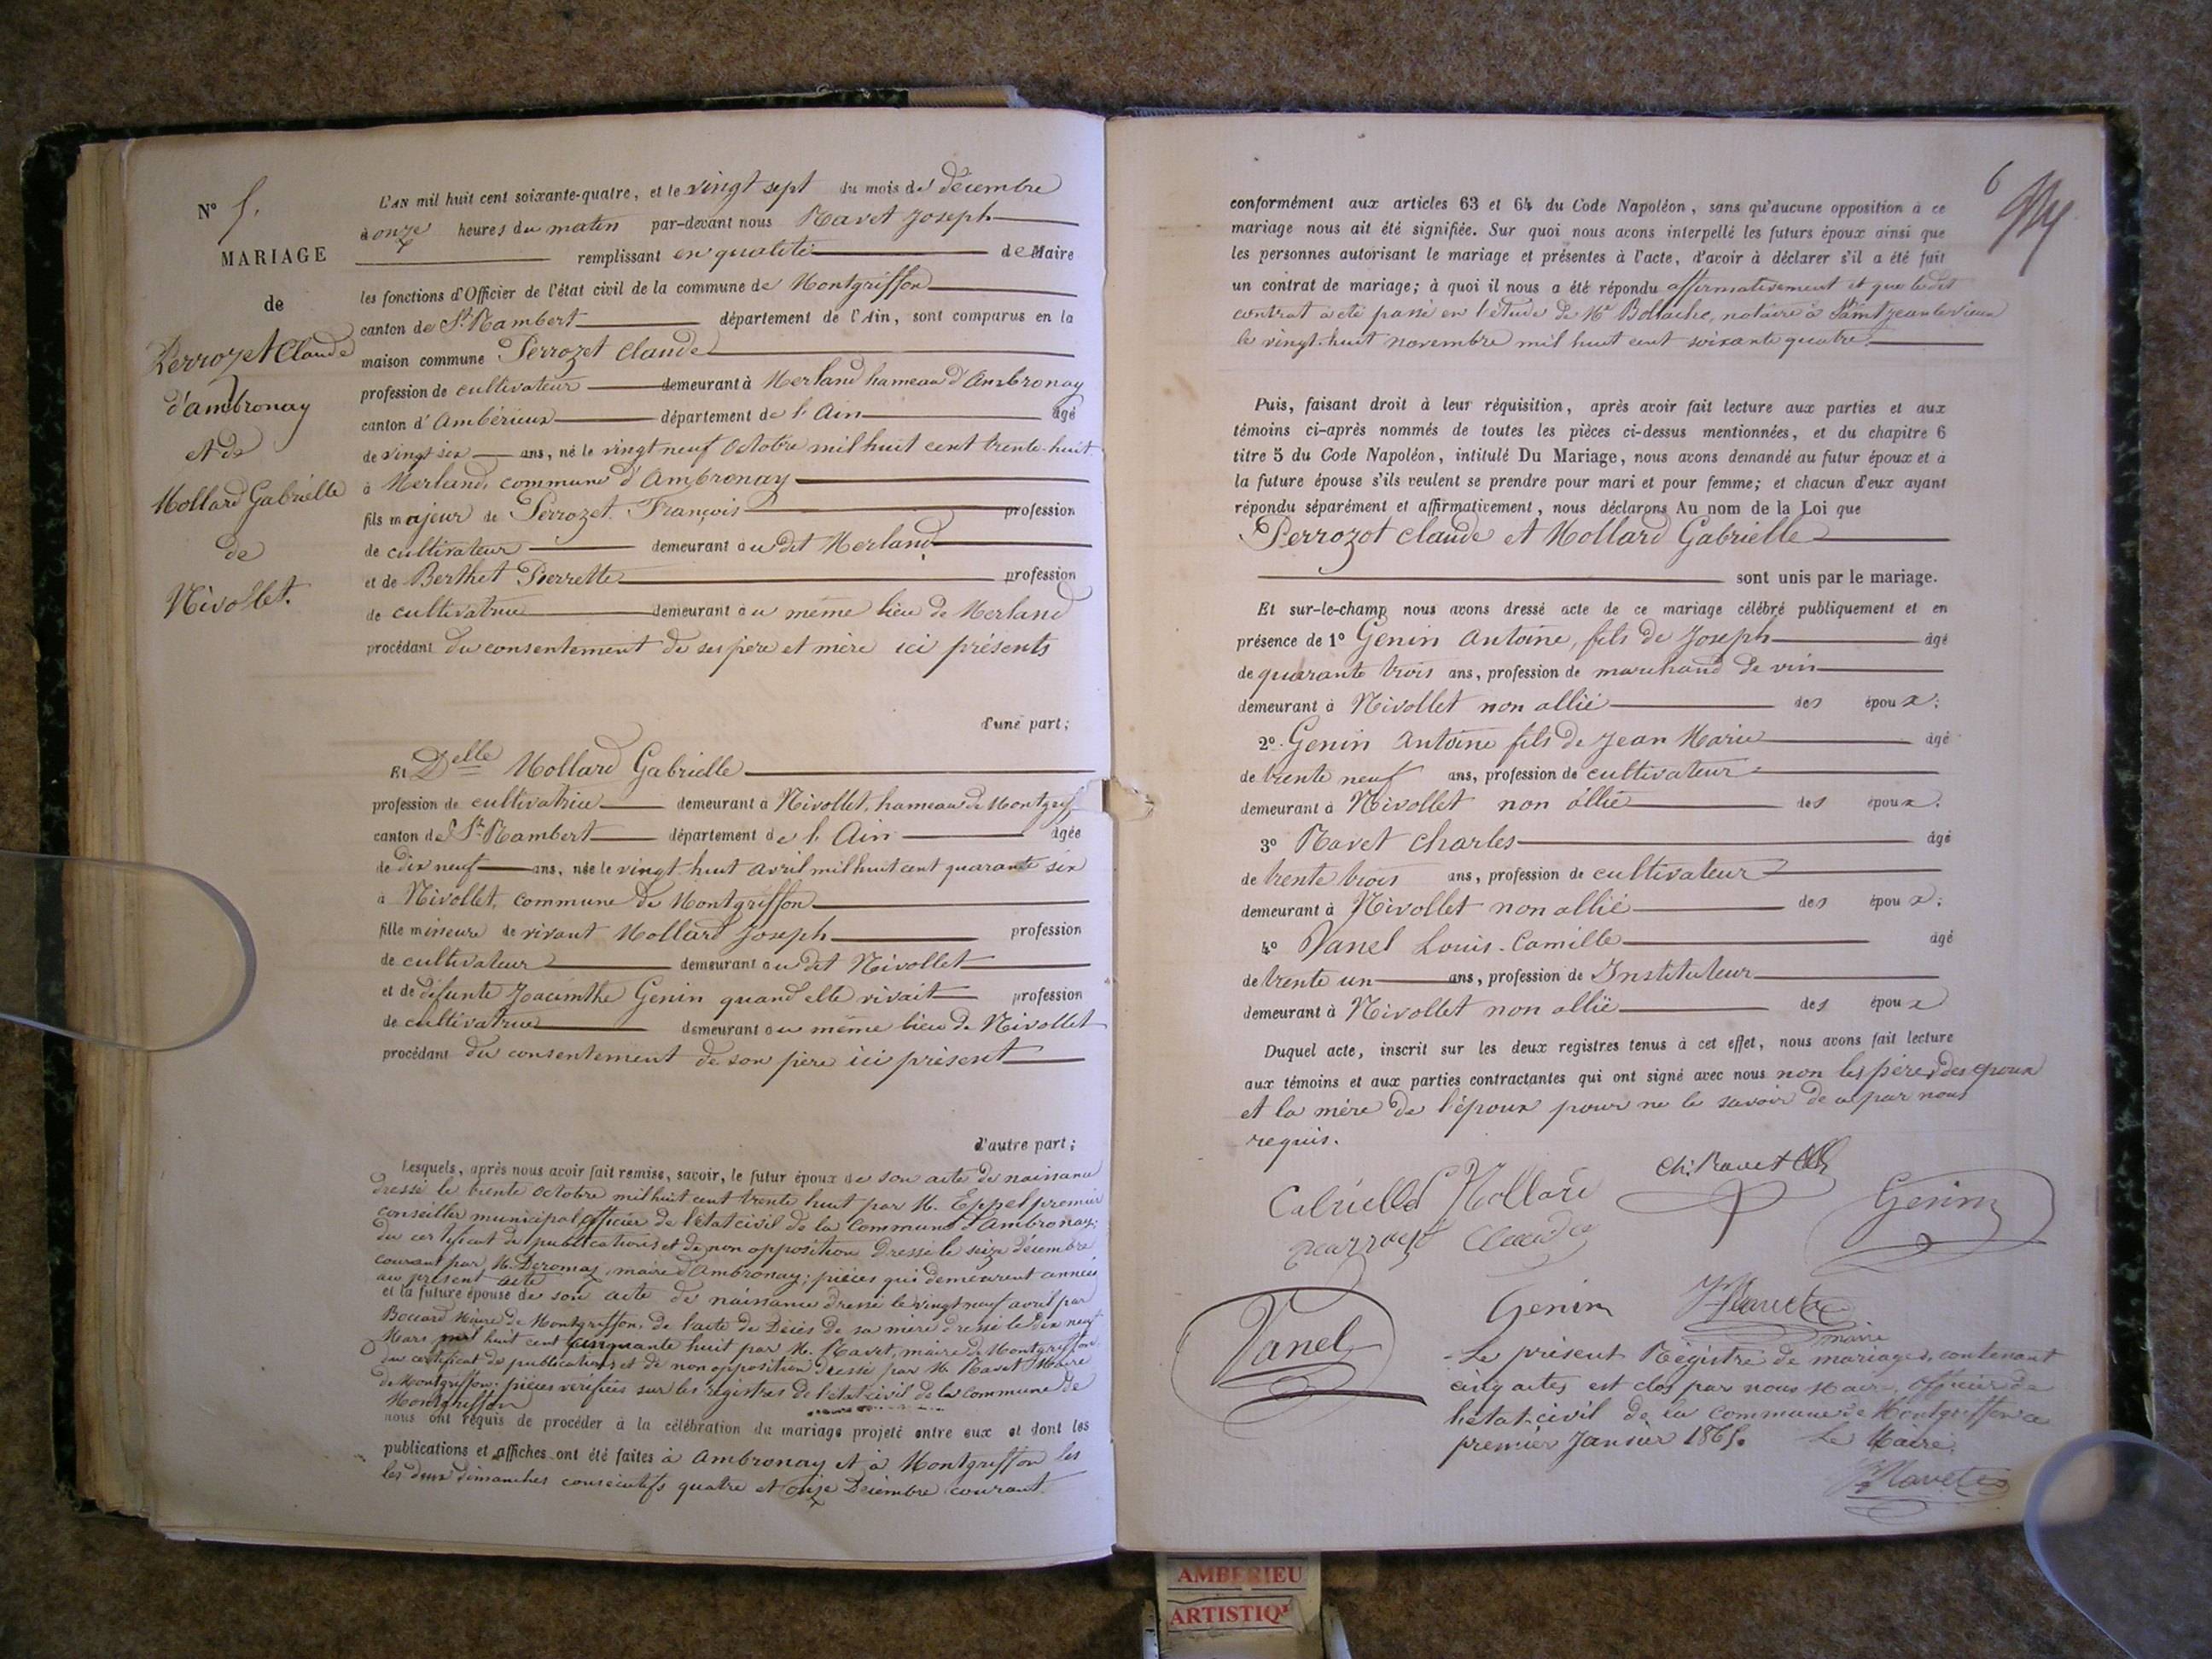 N° 5.
MARIAGE
de
Perrozet Claude
d'ambronay
et de
Mollard Gabrielle
de
Nivollet.
L'AN mil huit cent soixante-quatre, et le vingt sept du mois de décembre
à onze heures du matin par-devant nous Ravet Joseph
remplissant en qualité de Maire
les fonctions d'Officier de l'état civil de la commune de Montgriffon
canton de St Rambert département de l'Ain, sont comparus en la
maison commune Perrozet Claude
profession de cultivateur demeurant à Merland hameau d'Ambronay
canton d'Ambérieux département de l'Ain âgé
de vingt six ans, né le vingt neuf Octobre mil huit cent trente-huit
à Merland, commune d'Ambronay
fils majeur de Perrozet François profession
de cultivateur demeurant au dit Merland
et de Berthet Pierrette profession
de cultivatrice demeurant au même lieu de Merland
procédant du consentement de ses père et mère ici présents
d'une part;
Et Delle Mollard Gabrielle
profession de cultivatrice demeurant à Nivollet, hameau de Montgriff
canton de St Rambert département de l'Ain âgée
de dix neuf ans, née le vingt-huit avril mil huit cent quarante six
à Nivollet, commune de Montgriffon
fille mineure de vivant Mollard Joseph profession
de cultivateur demeurant au dit Nivollet
et de défunte Jacinthe Genin quand elle vivait profession
de cultivatrice demeurant au même lieu de Nivollet
procédant du consentement de son père ici présent
d'autre part;
Lesquels, après nous avoir fait remise, savoir, le futur époux de son acte de naissance
dressé le trente octobre mil huit cent trente huit par M. Eppel premier
conseiller municipal officier de l'état civil de la commune d'Ambronay;
du certificat de publications et de non opposition dressé le seize décembre
courant par M. Deromas, maire d'Ambronay; pièces qui demeurent annexées
au présent acte
et la future épouse de son acte de naissance dressé le vingt neuf avril par
Boccard Maire de Montgriffon, de l'acte de décès de sa mère dressé le dix neuf
Mars mil huit cent cinquante huit par M. Ravet, maire de Montgriffon
du certificat de publications et de non opposition dressé par M. Ravet Maire
de Montgriffon; pièces vérifiées sur les registres de l'état civil de la commune de
Montgriffon
nous ont requis de procéder à la célébration du mariage projeté entre eux et dont les
publications et affiches ont été faites à Ambronay et à Montgriffon les
les deux dimanches consécutifs quatre et onze Décembre courant.
6
conformément aux articles 63 et 64 du Code Napoléon, sans qu'aucune opposition à ce
mariage nous ait été signifiée. Sur quoi nous avons interpellé les futurs époux ainsi que
les personnes autorisant le mariage et présentes à l'acte, d'avoir à déclarer s'il a été fait
un contrat de mariage; à quoi il nous a été répondu affirmativement et que ledit
contrat a été passé en l'étude de Me Bollache, notaire à Saint jean le vieux
le vingt-huit novembre mil huit cent soixante quatre.
Puis, faisant droit à leur réquisition, après avoir fait lecture aux parties et aux
témoins ci-après nommés de toutes les pièces ci-dessus mentionnées, et du chapitre 6
titre 5 du Code Napoléon, intitulé Du Mariage, nous avons demandé au futur époux et à
la future épouse s'ils veulent se prendre pour mari et pour femme; et chacun d'eux ayant
répondu séparément et affirmativement, nous déclarons Au nom de la Loi que
Perrozet Claude et Mollard Gabrielle
sont unis par le mariage.
Et sur-le-champ nous avons dressé acte de ce mariage célébré publiquement et en
présence de 1° Genin Antoine, fils de Joseph âgé
de quarante trois ans, profession de marchand de vin
demeurant à Nivollet non allié des époux;
2° Genin Antoine fils de Jean Marie âgé
de trente neuf ans, profession de cultivateur
demeurant à Nivollet non allié des époux.
3° Ravet Charles âgé
de trente trois ans, profession de cultivateur
demeurant à Nivollet non allié des époux;
4° Vanel Louis-Camille âgé
de trente un ans, profession de Instituteur
demeurant à Nivollet non allié des époux
Duquel acte, inscrit sur les deux registres tenus à cet effet, nous avons fait lecture
aux témoins et aux parties contractantes qui ont signé avec nous non les pères des époux
et la mère de l'époux pour ne le savoir de ce par nous
requis.
Gabriella Mollard
Ch: Ravet
Genin
Claude
Vanel
Genin
J Ravet
maire
Le présent Régistre de mariages, contenant
cinq actes est clos par nous Maire, Officier de
l'état-civil de la commune de Montgriffon ce
premier Janvier 1865. Le Maire,
J Ravet
AMBERIEU
ARTISTIQ